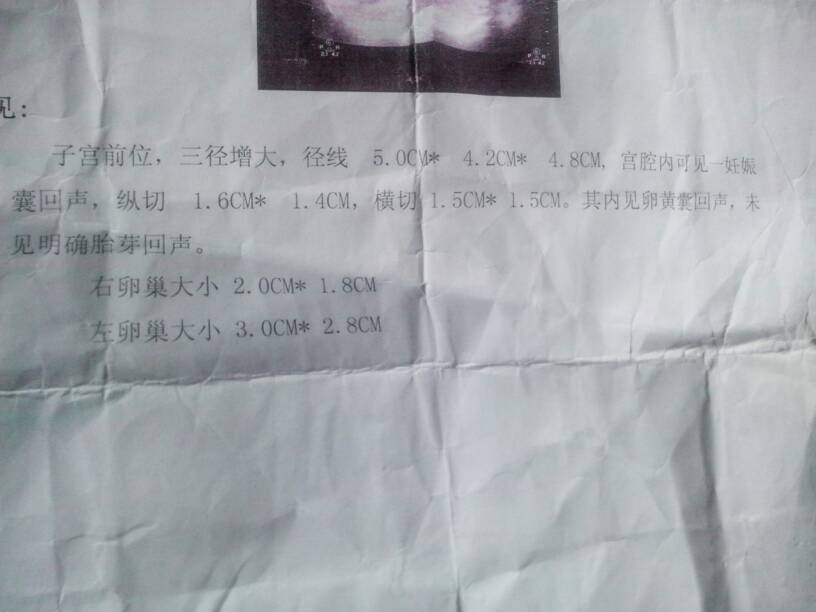 见:
子宫前位，三径增大，径线 5.0CM* 4.2CM* 4.8CM，宫腔内可见一妊娠
囊回声，纵切 1.6CM* 1.4CM，横切 1.5CM* 1.5CM。其内见卵黄囊回声，未
见明确胎芽回声。
右卵巢大小 2.0CM* 1.8CM
左卵巢大小 3.0CM* 2.8CM